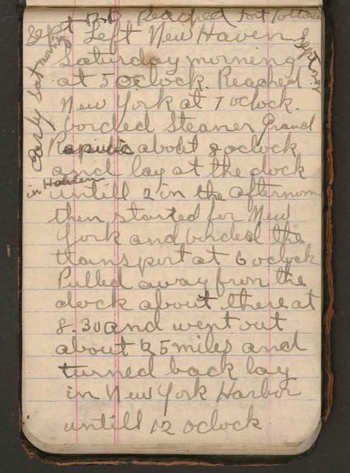 Sept 20 Reached Fort Totten
Left New Haven
Saturday morning
at 5 oclock. Reached
New York at 7 oclock.
borded Steaner Grand
Rapids about 8 oclock
and lay at the dock
in Hoboken untill 2 in the afternoon
then started for New
York and borded the
transport at 6 oclock
Pulled away from the
dock about there at
8.30 and went out
about 25 miles and
turned back lay
in New York Harbor
untill 12 oclock
Early Sat morning
Sept 21